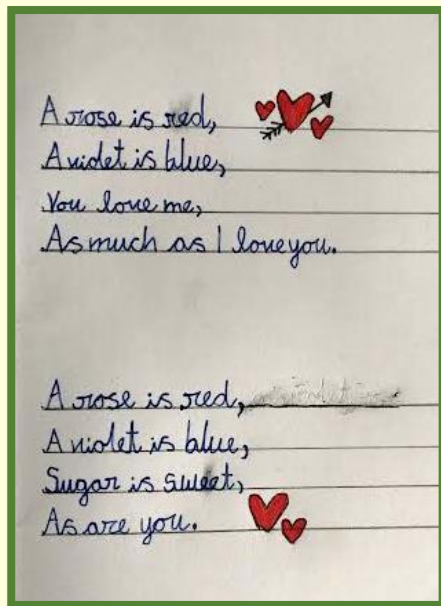 A rose is red,
A violet is blue,
You love me,
As much as I love you.
A rose is red,
A violet is blue,
Sugar is sweet,
As are you.